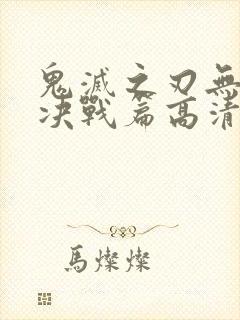 鬼滅之刃無
决戰篇高清
馬燦燦